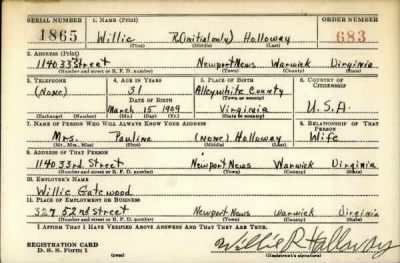 SERIAL NUMBER 1. NAME (Print) ORDER NUMBER
1865 Willie R(initial only) Holloway 683
(First) (Middle) (Last)
2. ADDRESS (Print)
1140 33 Street Newport News Warwick Virginia
(Number and street or R. F. D. number) (Town) (County) (State)
3. TELEPHONE 4. AGE IN YEARS 5. PLACE OF BIRTH 6. COUNTRY OF CITIZENSHIP
(None) 31 County
DATE OF BIRTH (Town or county)
March 15 1909 Virginia U.S.A.
(Exchange) (Number) (Mo.) (Day) (Yr.) (State or country)
7. NAME OF PERSON WHO WILL ALWAYS KNOW YOUR ADDRESS 8. RELATIONSHIP OF THAT PERSON
Mrs. Pauline (None) Holloway Wife
(Mr., Mrs., Miss) (First) (Middle) (Last)
9. ADDRESS OF THAT PERSON
1140 33rd Street Newport News Warwick Virginia
(Number and street or R. F. D. number) (Town) (County) (State)
10. EMPLOYER'S NAME
Willie Gatewood
11. PLACE OF EMPLOYMENT OR BUSINESS
327 52nd Street Newport News Warwick Virginia
(Number and street or R. F. D. number) (Town) (County) (State)
I AFFIRM THAT I HAVE VERIFIED ABOVE ANSWERS AND THAT THEY ARE TRUE.
REGISTRATION CARD
D. S. S. Form 1 (over) Willie R Holloway
(Registrant's signature)